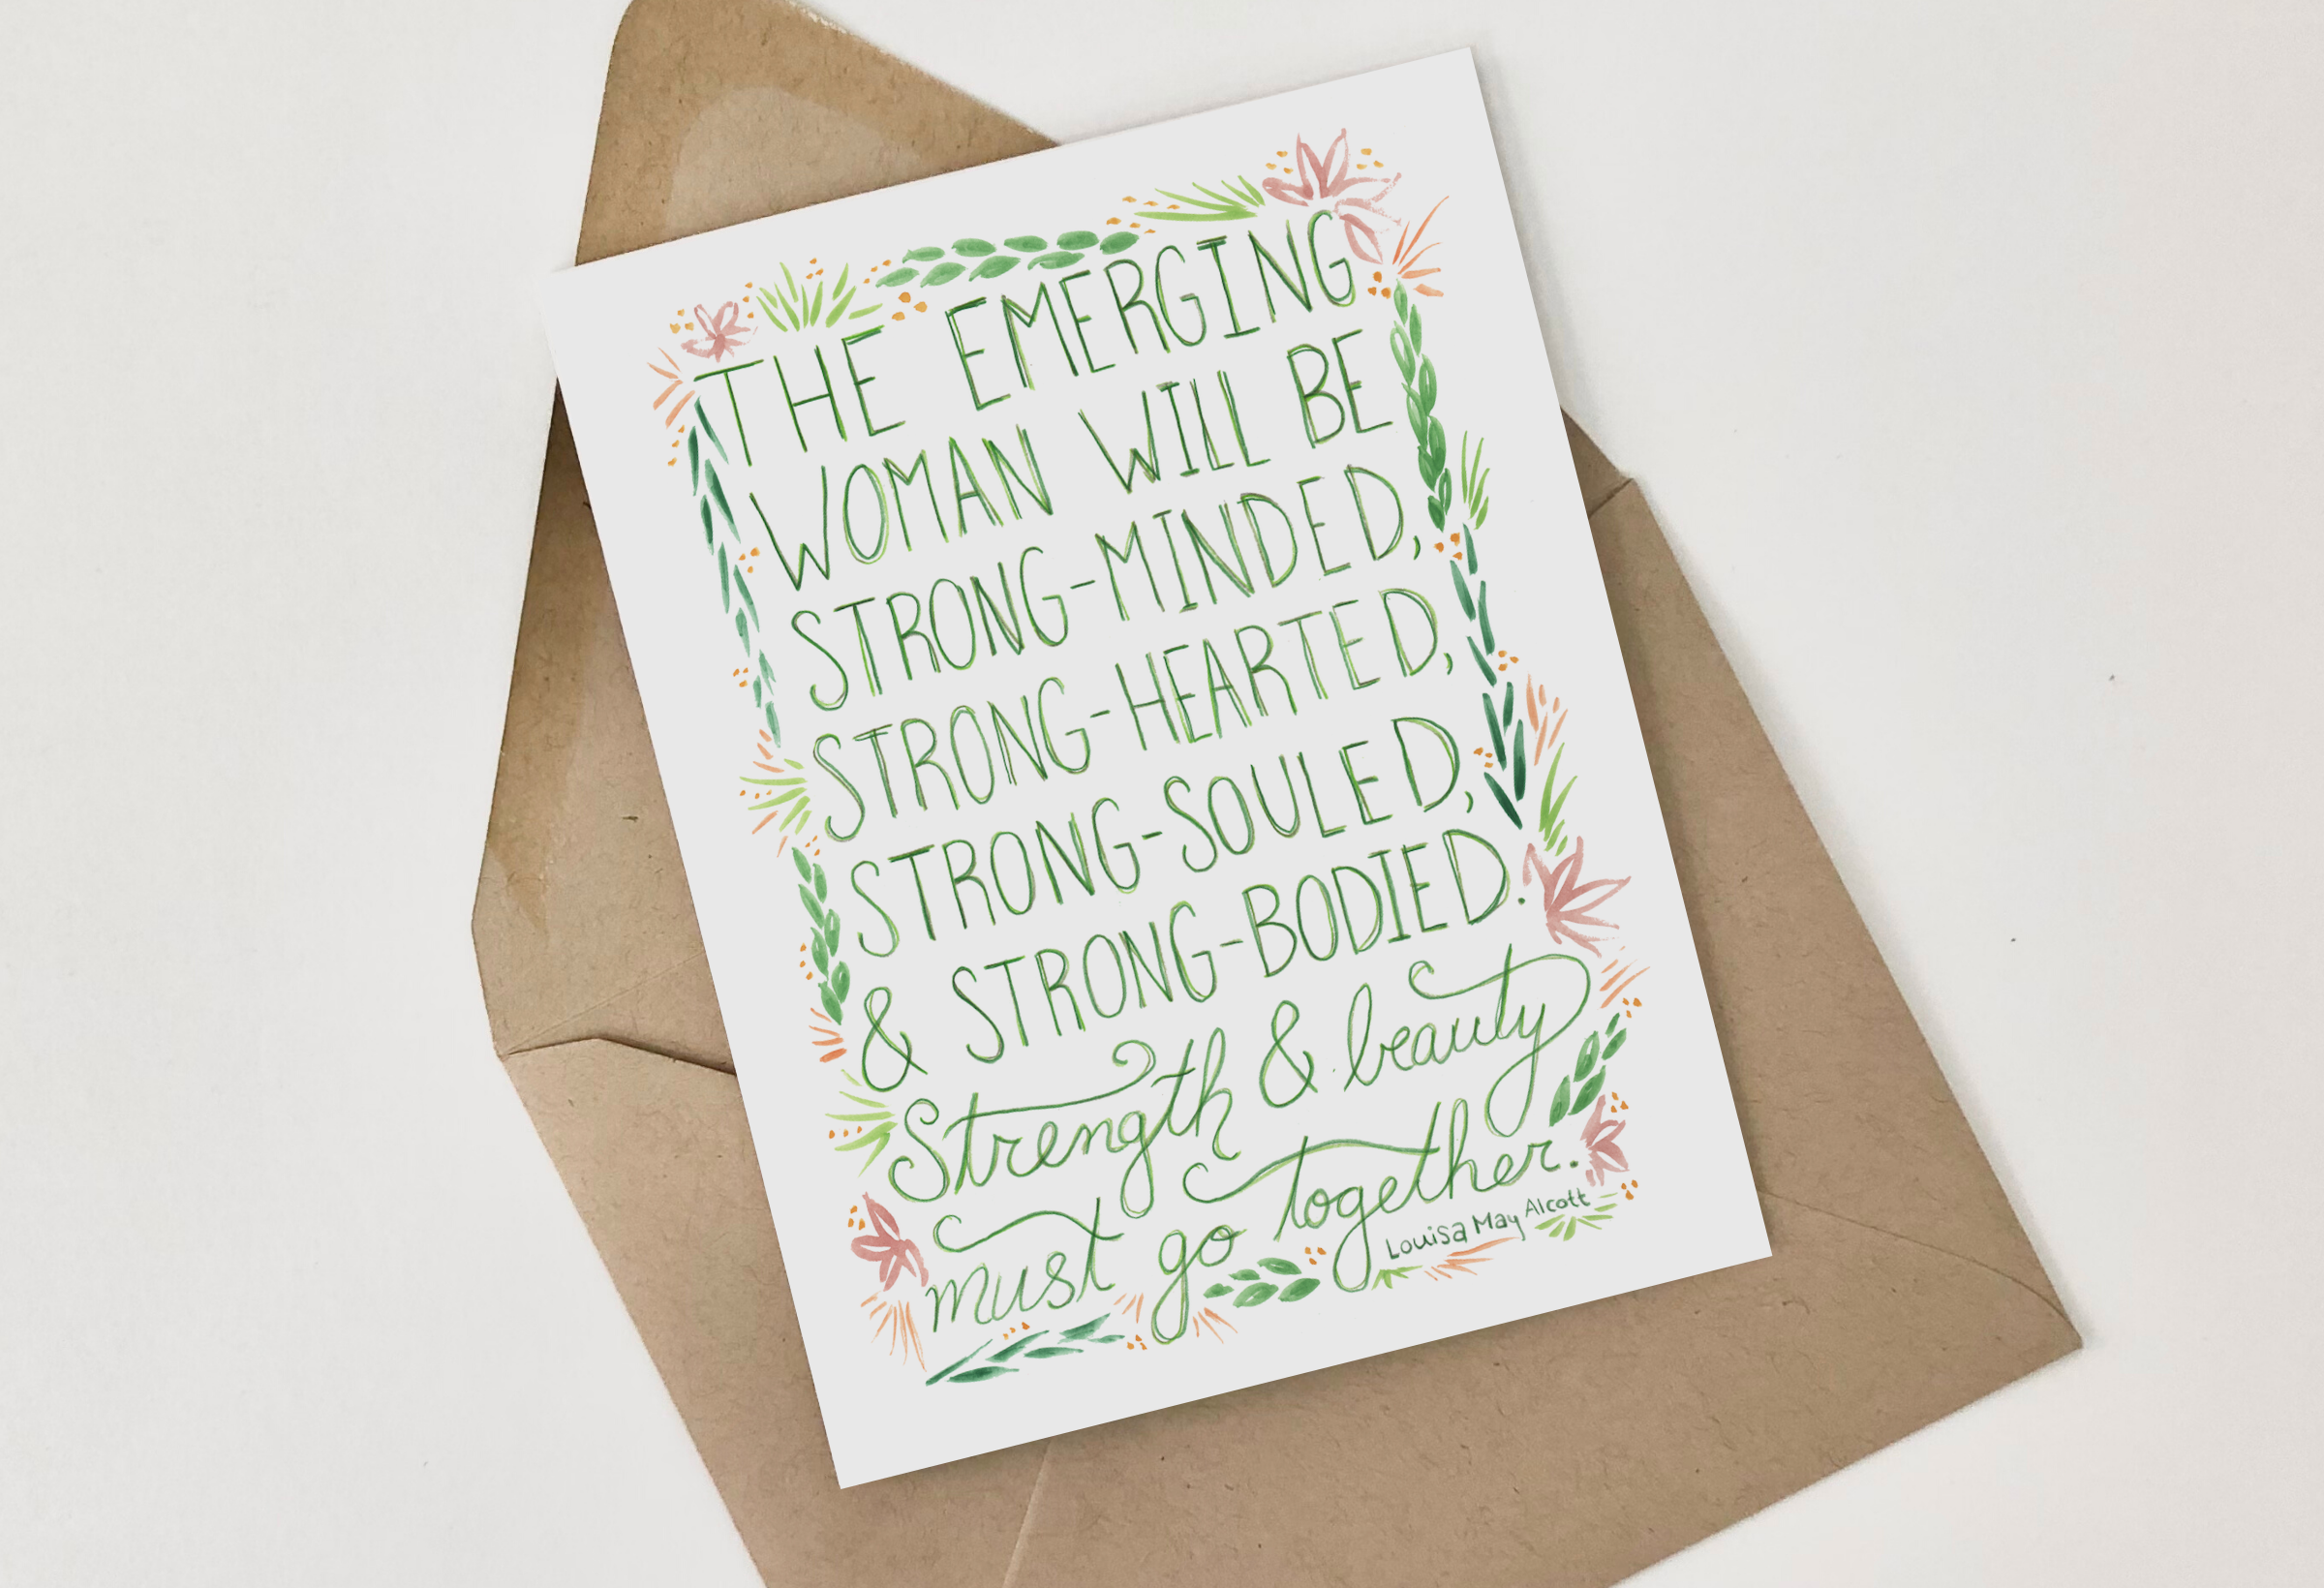 THE EMERGING
WOMAN WILL BE
STRONG-MINDED,
STRONG-HEARTED,
STRONG-SOULED,
& STRONG-BODIED.
Strength & beauty
must go together.
Louisa May Alcott